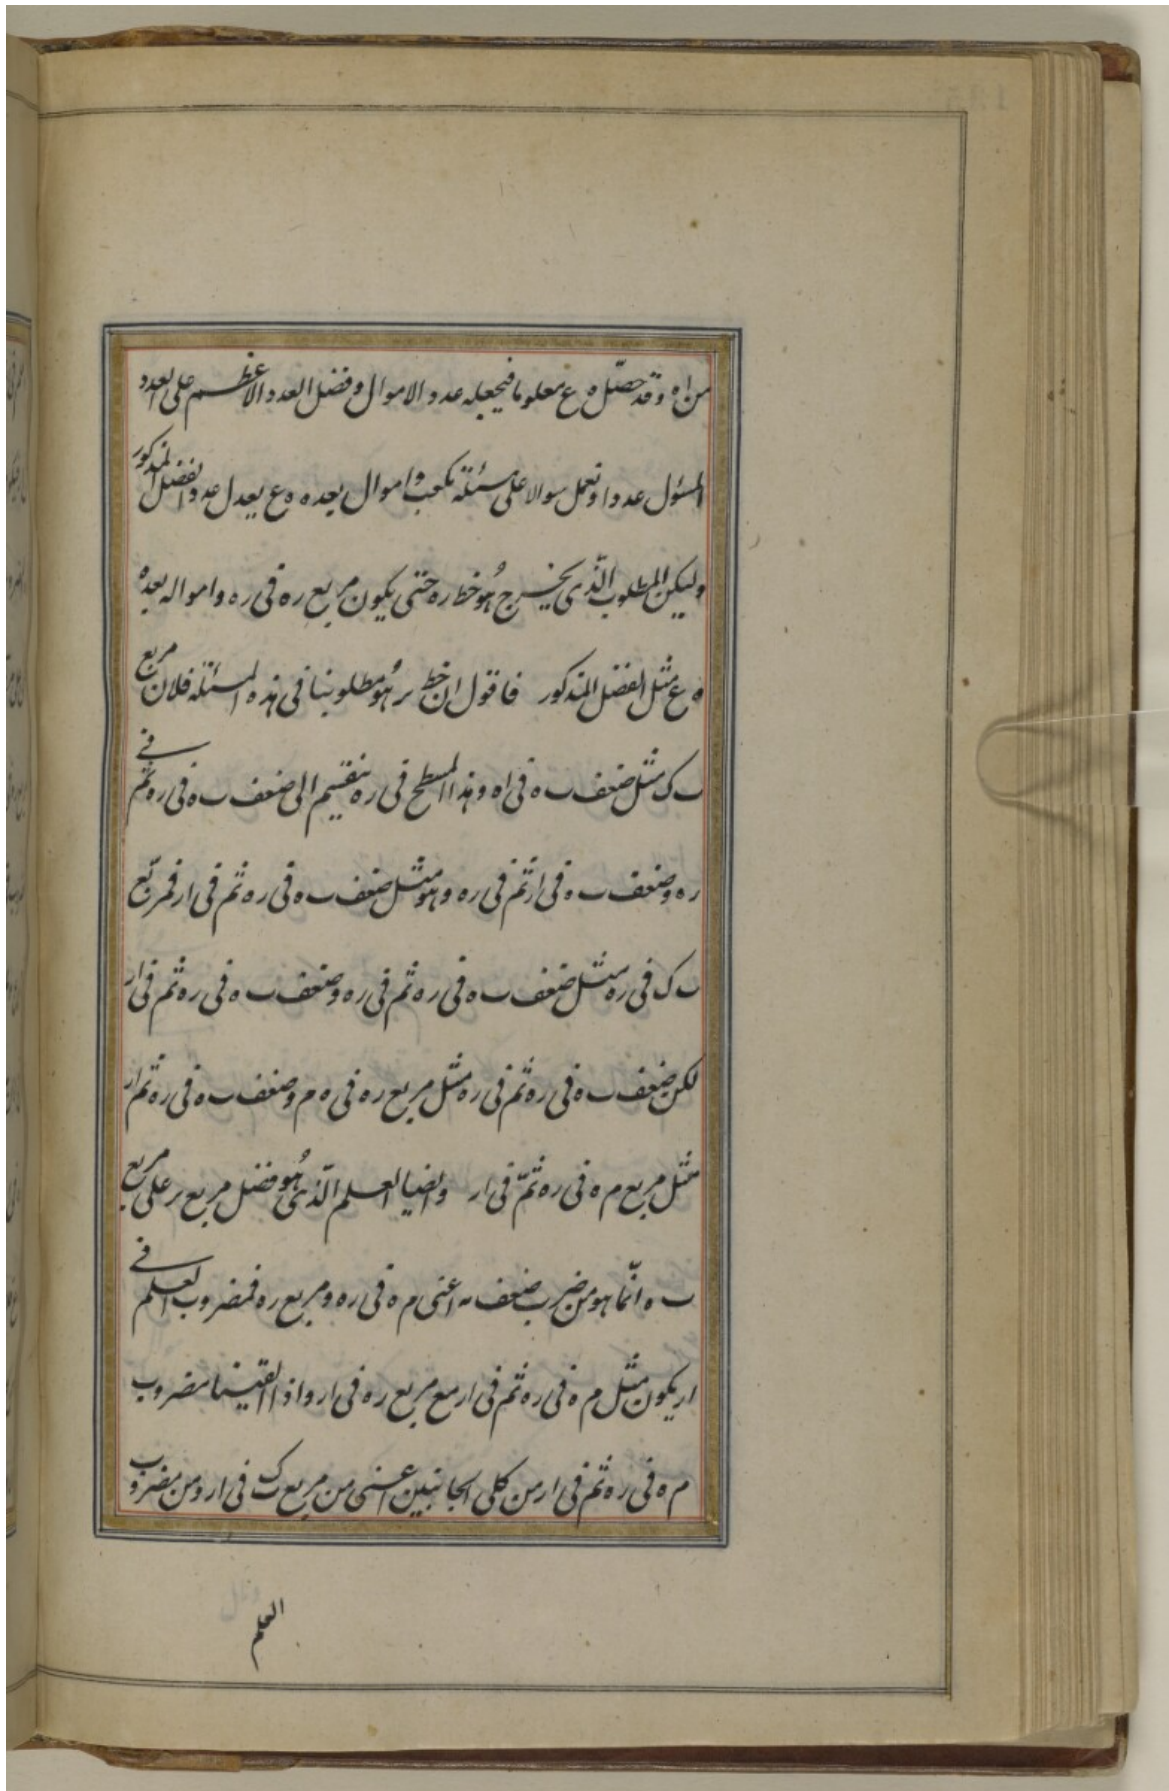 من اه وقد حصّل ه ع معلوما فيجعله عدد الاموال وفضل العدد الاعظم على العدد
المسئول عددا ونعمل سوالا على مسئلة مكعب واموال بعده ه ع يعدل عدد الفضل المذكور
وليكن المطلوب الّذى يخرج هُو خط ره حتى يكون مربع ره فى ره وامواله بعدة
ه ع مثل الفضل المذكور فاقول ان خط بر هُو مطلوبنا فى هذه المسئلة فلان مربع
ب ك مثل ضعف ب ه فى اه وهذا المسطح فى ره ينقسم الى ضعف ب ه فى ره ثم فى
ره وضعف ب ه فى ار ثم فى ره وهو مثل ضعف ب ه فى ره ثم فى ار فمربّع
ب ك فى ره مثل ضعف ب ه فى ره ثم فى ره وضعف ب ه فى ره ثم فى ار
لكن ضعف ب ه فى ره ثم فى ره مثل مربع ره فى ه م وضعف ب ه فى ره ثم ار
مثل مربع م ه فى ره ثمّ فى ار وايضا العلم الّذى هُو فضل مربع بر على مربع
ب ه انّما هو من ضرب ضعف به اعنى م ه فى ره ومربع ره فمضروب العلم فى
ار يكون مثل م ه فى ره ثم فى ار مع مربع ره فى ار واذا القينا مضروب
م ه فى ره ثم فى ار من كلى الجانبين اعنى من مربع ب ك فى ار ومن مضروب
العلم